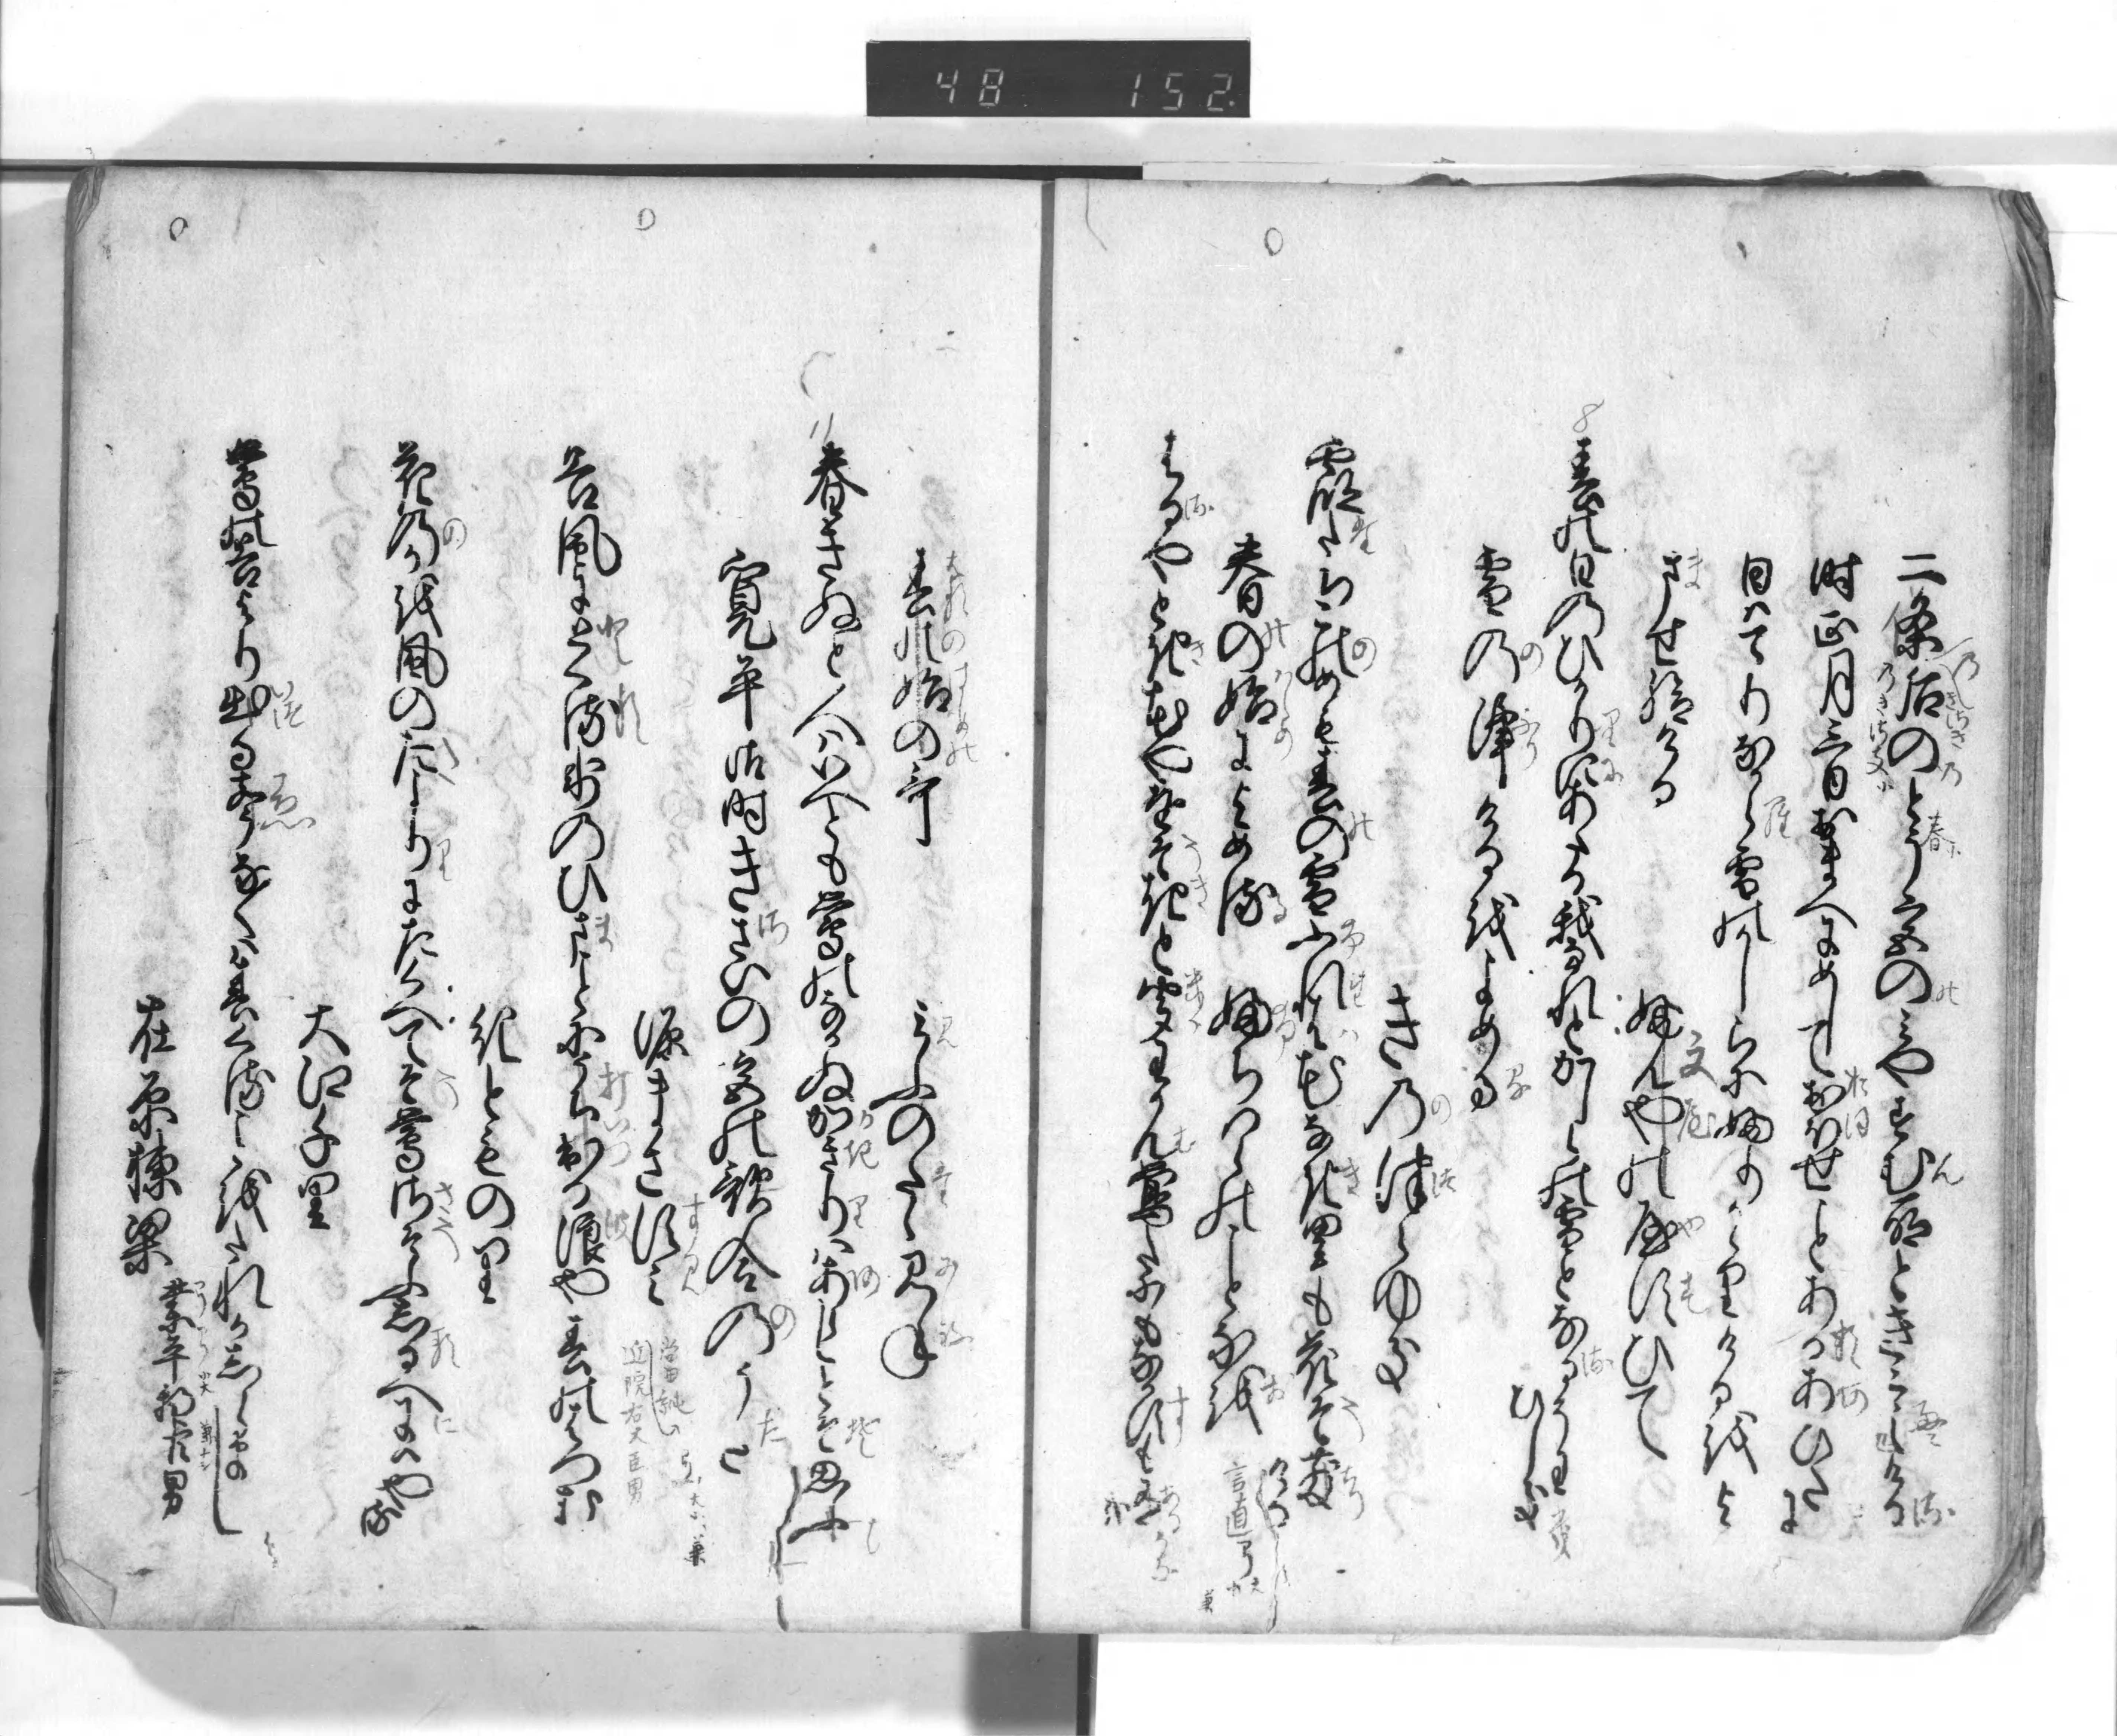 48 152
二条后のとう宮のみやすむ所ときこえける
時正月三日おまへにめしておほせことあるあひたに
日はてりなから雪のかしらにふりかゝりけるを
よませ給ける
ふんやのやすひて
8
春の日のひかりにあたる我なれとかしらの雪となるそわひしき
雪のふりけるをよめる
きのつらゆき
霞たちこのめも春の雪ふれは花なき里も花そちりける
春の始によめる
ふちはらのことなを
言直
はるやとき花やをそきと聞わかん鶯たにもなかすも有かな
春の始の哥
みふのたゝみね
11
春きぬと人はいへとも鶯のなかぬかきりはあらしとそ思ふ
寛平御時きさいの宮の歌合のうた
源まさすみ
当純
近院右大臣男
谷風にとくる氷のひまことにうち出る浪や春のはつ花
紀とものり
花のかを風のたよりにたくへてそ鶯さそふしるへにはやる
大江千里
鶯の谷より出るこゑなくは春くることをたれかしらまし
在原棟梁
業平朝臣男